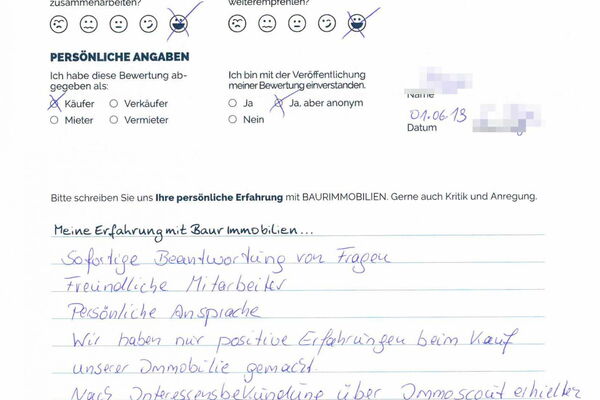 zusammenarbeiten? weiterempfehlen?
PERSÖNLICHE ANGABEN
Ich habe diese Bewertung ab- Ich bin mit der Veröffentlichung
gegeben als: meiner Bewertung einverstanden.
Käufer Verkäufer Ja Ja, aber anonym
Mieter Vermieter Nein
Name
01.06.19
Datum
Bitte schreiben Sie uns Ihre persönliche Erfahrung mit BAURIMMOBILIEN. Gerne auch Kritik und Anregung.
Meine Erfahrung mit Baur Immobilien...
Sofortige Beantwortung von Fragen
Freundliche Mitarbeiter
Persönliche Ansprache
Wir haben nur positive Erfahrungen beim Kauf
unserer Immobilie gemacht.
Nach Interessensbekundung über Immoscout erhielten